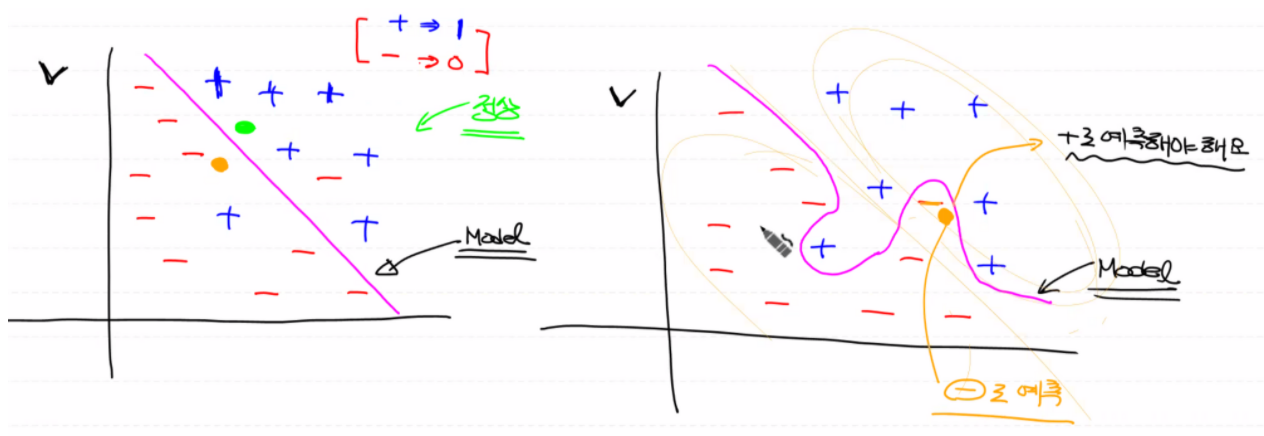 + ⇒ 1
- → 0
정상
Model
+로 예측해야해요
Model
-로 예측